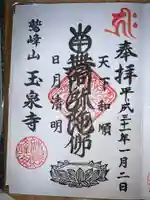 奉拝 平成三十一年一月二日
天下和順
南無阿弥陀仏
日月清明
鷲峰山 玉泉寺